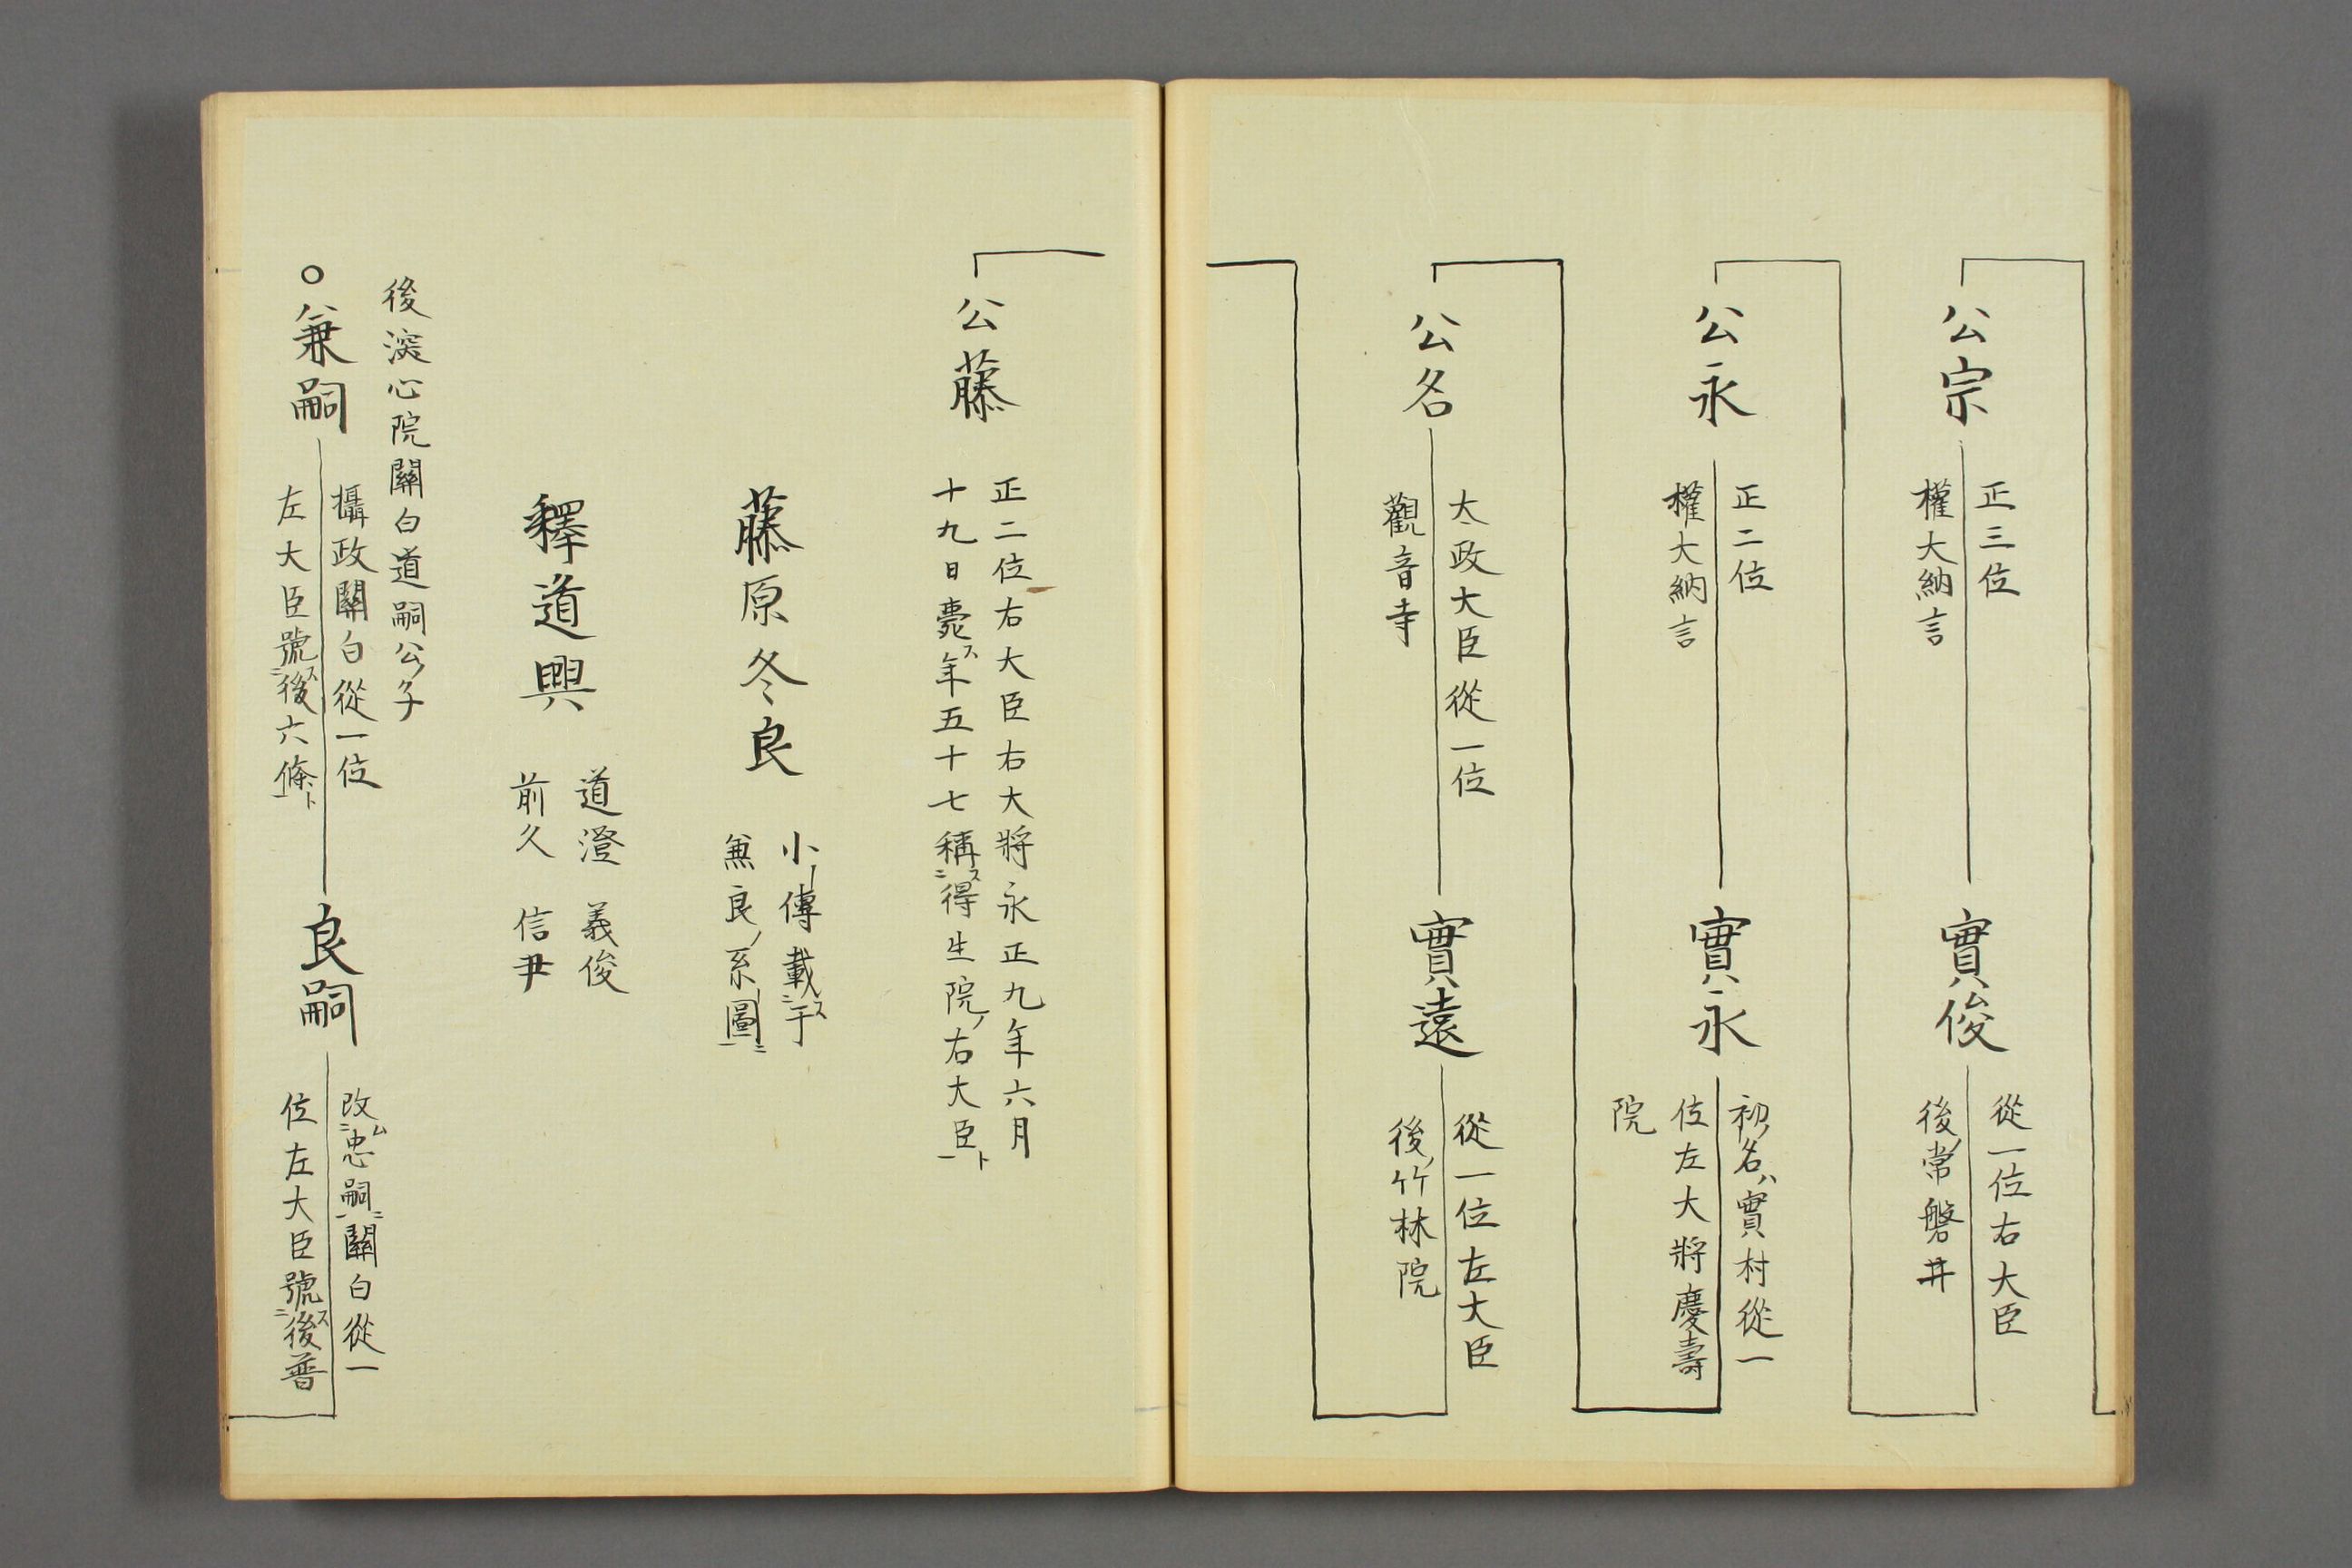 公宗
正三位
權大納言
實俊
從一位右大臣
後ノ常磐井
公永
正二位
權大納言
實永
初ノ名ハ實村從一
位左大將慶壽
院
公名
太政大臣從一位
觀音寺
實遠
從一位左大臣
後ノ竹林院
公藤
正二位右大臣右大將永正九年六月
十九日薨ス年五十七稱ス二得生院ノ右大臣ト一
藤原冬良
小傳載ス二于
兼良ノ系圖ニ一
釋道興
道澄 義俊
前久 信尹
後深心院關白道嗣公ノ子
○兼嗣
攝政關白從一位
左大臣號ス二後六條ト一
良嗣
改ム二忠嗣ニ一關白從一
位左大臣號ス二後普